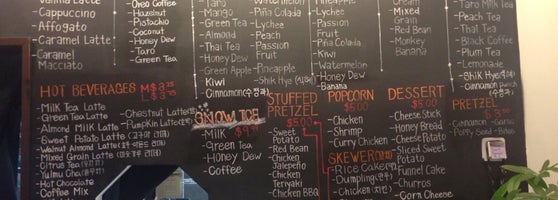 -Vanilla Latte
-Cappuccino
-Affogato
-Caramel Latte
-Caramel
Macciato
-Oreo Coffee
-Hazelnut
-Pistachio
-Coconut
-Honey Dew
-Toro
-Green Tea
-Taro
-Mango
-Green Tea
-Almond
-Thai Tea
-Honey Dew
-Green Apple
-Kiwi
-Cinnamon
-Watermelon
-Piña Colada
-Lychee
-Passion
Fruit
-Peach
-Pineapple
-Shik Hye
-Piña Colada
-Lychee
-Passion
Fruit
-Piña Colada
-Kiwi
-Watermelon
-Honey Dew
-Banana
Cream
-Mixed
Grain
-Red Bean
-Monkey
Banana
-Taro Milk Tea
-Peach Tea
-Thai Tea
-Black Coffee
-Plum Tea
-Lemonade
-Shik Hye
-Cinnamon
Punch
HOT BEVERAGES
-Milk Tea Latte
-Green Tea Latte
-Almond Milk Latte
-Sweet Potato Latte
-Walnut Almond Latte
-Mixed Grain Latte
-Citrus Tea
-Yulmu Cha
-Hot Chocolate
-Coffee Mix
-Chestnut Latte
-Pumpkin Latte
SNOW ICE
-Milk
-green Tea
-Honey Dew
-Coffee
STUFFED
PRETZEL
$5.00
-Sweet
Potato
-Red Bean
-Chicken
Jalapeño
-Chicken
Teriyaki
-Chicken BBQ
POPCORN
$5.00
-Chicken
-Shrimp
-Curry Chicken
SKEWER
-Rice Cake
-Dumpling
-Chicken
DESSERT
$5.00
-Cheese Stick
-Honey Bread
-Cheese Potato
-Sliced Sweet
Potato
-Funnel Cake
-Churros
-Corn Cheese
PRETZEL
-Cinnamon